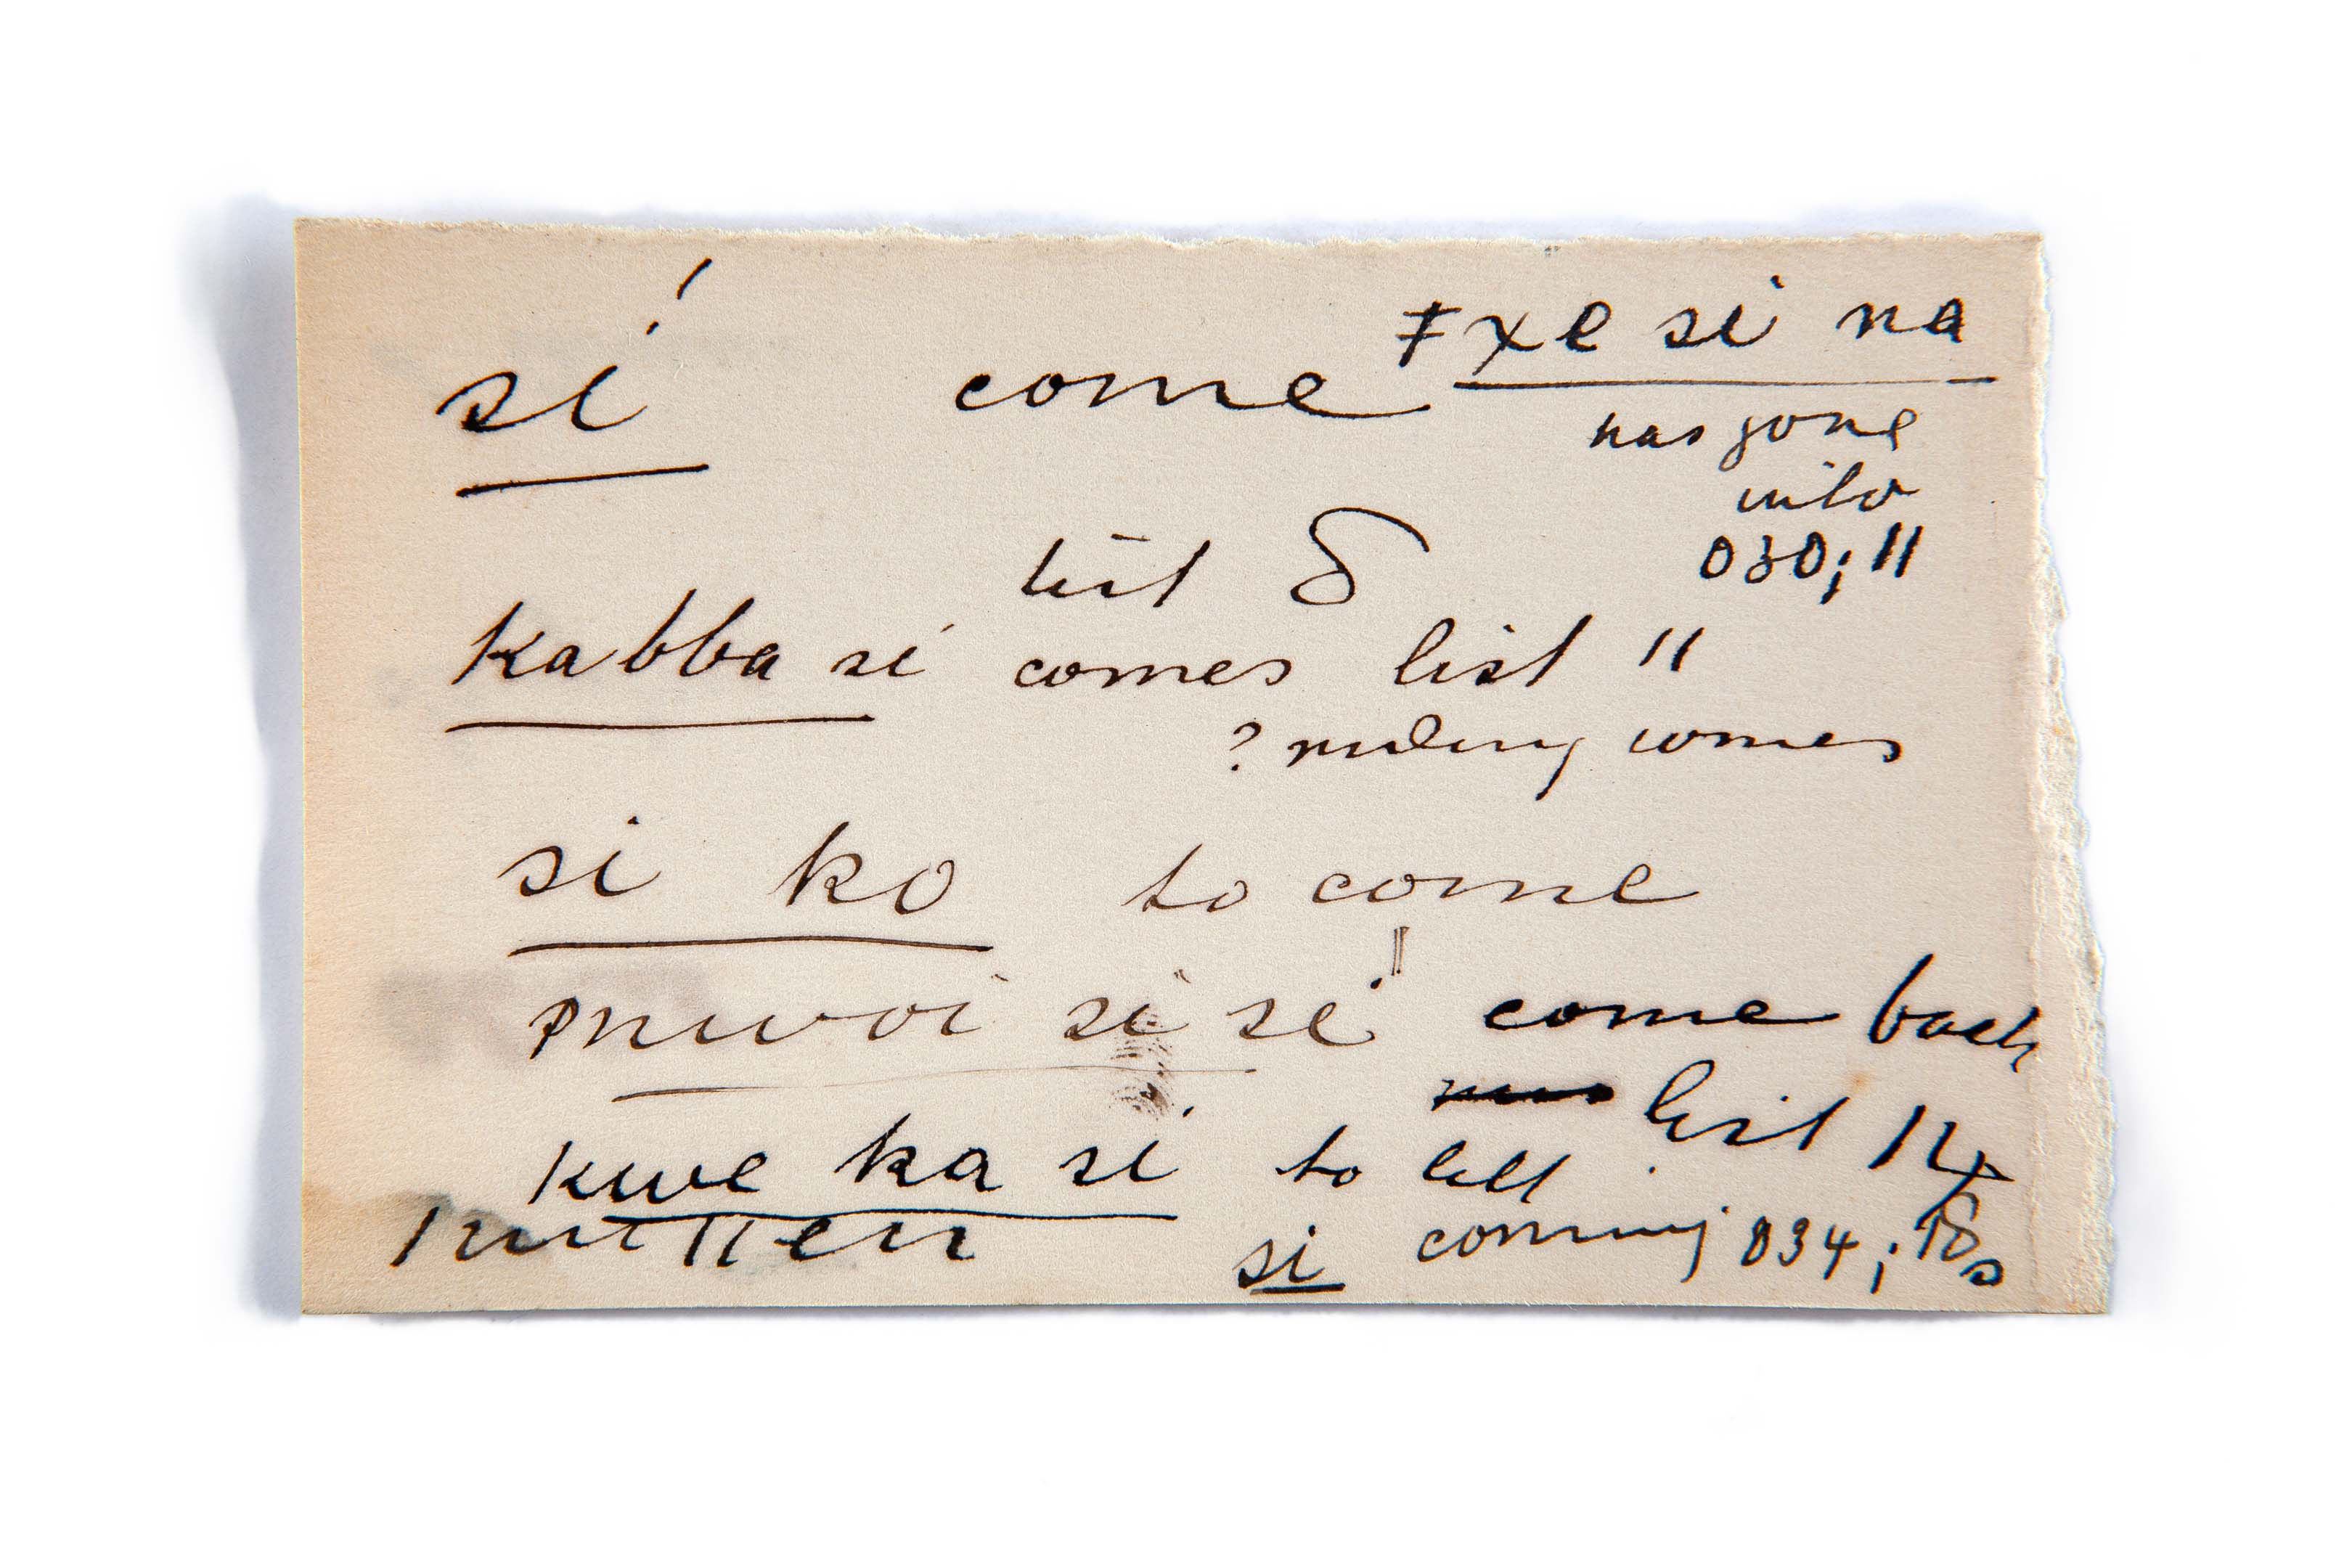 sí come
ǂxe si na
has gone
into
030; 11
list 8
kabba si comes list 11
? riding comes
si ko to come
si sé come back
list 12
kwe ka si to tell
si coming 034; 18